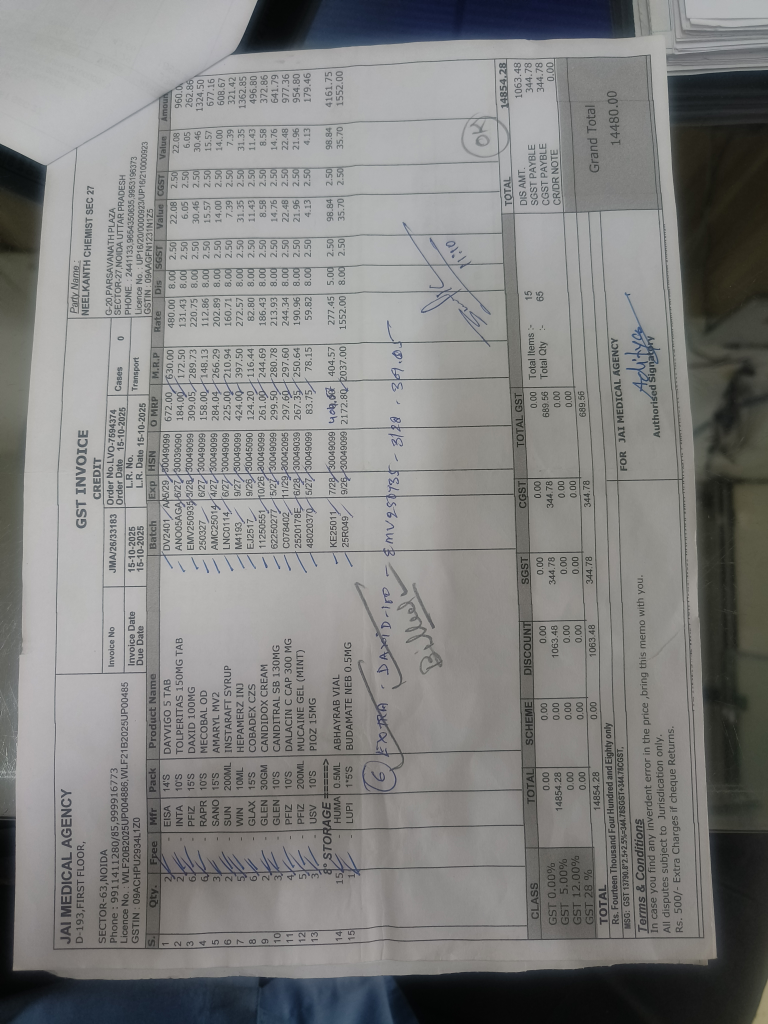 GST INVOICE
CREDIT
JAI MEDICAL AGENCY
D-193,FIRST FLOOR,
SECTOR-63,NOIDA
Phone : 9911411280/85,9999916773
Licence No. : WLF20B2025UP004886,WLF21B2025UP00485
GSTIN : 09ACHPU2934L1Z0
Invoice No JMA/26/33183 Order No.LVO-7594374
Order Date 15-10-2025 Cases 0
Invoice Date 15-10-2025 L.R. No. Transport
Due Date 15-10-2025 L.R. Date 15-10-2025
Party Name :
NEELKANTH CHEMIST SEC 27
G-20,PARSAVANATH PLAZA
SECTOR-27,NOIDA UTTAR PRADESH
PHONE : 2441133,9654350835,9953196373
Licence No. : UP16/20/0000923/UP16/210000923
GSTIN : 09AAGFN1231N1Z5
S. Qty. Free Mfr Pack Product Name Batch Exp HSN O MRP M.R.P Rate Dis SGST Value CGST Value Amount
1 2 - EISA 14'S DAYVIGO 5 TAB DV2401 5/29 30049099 672.00 630.00 480.00 8.00 2.50 22.08 2.50 22.08 960.00
2 2 - INTA 10'S TOLPERITAS 150MG TAB ANO05AGA 6/27 30039090 184.00 172.50 131.43 8.00 2.50 6.05 2.50 6.05 262.86
3 6 - PFIZ 15'S DAXID 100MG EMV250935 3/28 30049099 309.05 289.73 220.75 8.00 2.50 30.46 2.50 30.46 1324.50
4 6 - RAPR 10'S MECOBAL OD 250327 6/27 30049099 158.00 148.13 112.86 8.00 2.50 15.57 2.50 15.57 677.16
5 3 - SANO 15'S AMARYL MV2 AMC25014 4/27 30049099 284.04 266.29 202.89 8.00 2.50 14.00 2.50 14.00 608.67
6 2 - SUN 200ML INSTARAFT SYRUP LN00114 1/27 30049099 225.00 210.94 160.71 8.00 2.50 7.39 2.50 7.39 321.42
7 5 - WIN 10ML HEPAMERZ INJ M4193 9/27 30049099 424.00 397.50 272.57 8.00 2.50 31.35 2.50 31.35 1362.85
8 6 - GLAX 15'S COBADEX CZS EJ2517 9/26 30045090 124.20 116.44 82.80 8.00 2.50 11.43 2.50 11.43 496.80
9 2 - GLEN 30GM CANDIDOX CREAM 11250551 10/26 30049099 261.00 244.69 186.43 8.00 2.50 8.58 2.50 8.58 372.86
10 3 - GLEN 10'S CANDITRAL SB 130MG 62250277 5/27 30049099 299.50 280.78 213.93 8.00 2.50 14.76 2.50 14.76 641.79
11 4 - PFIZ 10'S DALACIN C CAP 300 MG C078402 11/29 30042095 297.60 297.60 244.34 8.00 2.50 22.48 2.50 22.48 977.36
12 5 - PFIZ 200ML MUCAINE GEL (MINT) 2520178E 6/28 30049039 267.35 250.64 190.96 8.00 2.50 21.96 2.50 21.96 954.80
13 3 - USV 10'S PIOZ 15MG 48020370 5/27 30049099 83.75 78.15 59.82 8.00 2.50 4.13 2.50 4.13 179.46
8° STORAGE =====>
14 15 - HUMA 0.5ML ABHAYRAB VIAL KE25011 7/28 30049099 404.57 277.45 5.00 2.50 98.84 2.50 98.84 4161.75
15 1 - LUPI 1*5'S BUDAMATE NEB 0.5MG 25R049 9/26 30049099 2172.80 2037.00 1552.00 8.00 2.50 35.70 2.50 35.70 1552.00
6 EXTRA : DAXID-100 - EMV250935 - 3/28 - 309.05
Billed
OK
CLASS TOTAL SCHEME DISCOUNT SGST CGST TOTAL GST
GST 0.00% 0.00 0.00 0.00 0.00 0.00 0.00
GST 5.00% 14854.28 0.00 1063.48 344.78 344.78 689.56
GST 12.00% 0.00 0.00 0.00 0.00 0.00 0.00
GST 28 % 0.00 0.00 0.00 0.00 0.00 0.00
TOTAL 14854.28 0.00 1063.48 344.78 344.78 689.56
Total Items :- 15
Total Qty :- 65
TOTAL 14854.28
DIS AMT. 1063.48
SGST PAYBLE 344.78
CGST PAYBLE 344.78
CR/DR NOTE 0.00
Grand Total 14480.00
Rs. Fourteen Thousand Four Hundred and Eighty only
MSG: GST 13790.8*2.5+2.5%=344.78SGST+344.78CGST,
Terms & Conditions
In case you find any inverdent error in the price ,bring this memo with you.
All disputes subject to Jurisdication only.
Rs. 500/- Extra Charges if cheque Returns.
FOR JAI MEDICAL AGENCY
Aditya
Authorised Signatory